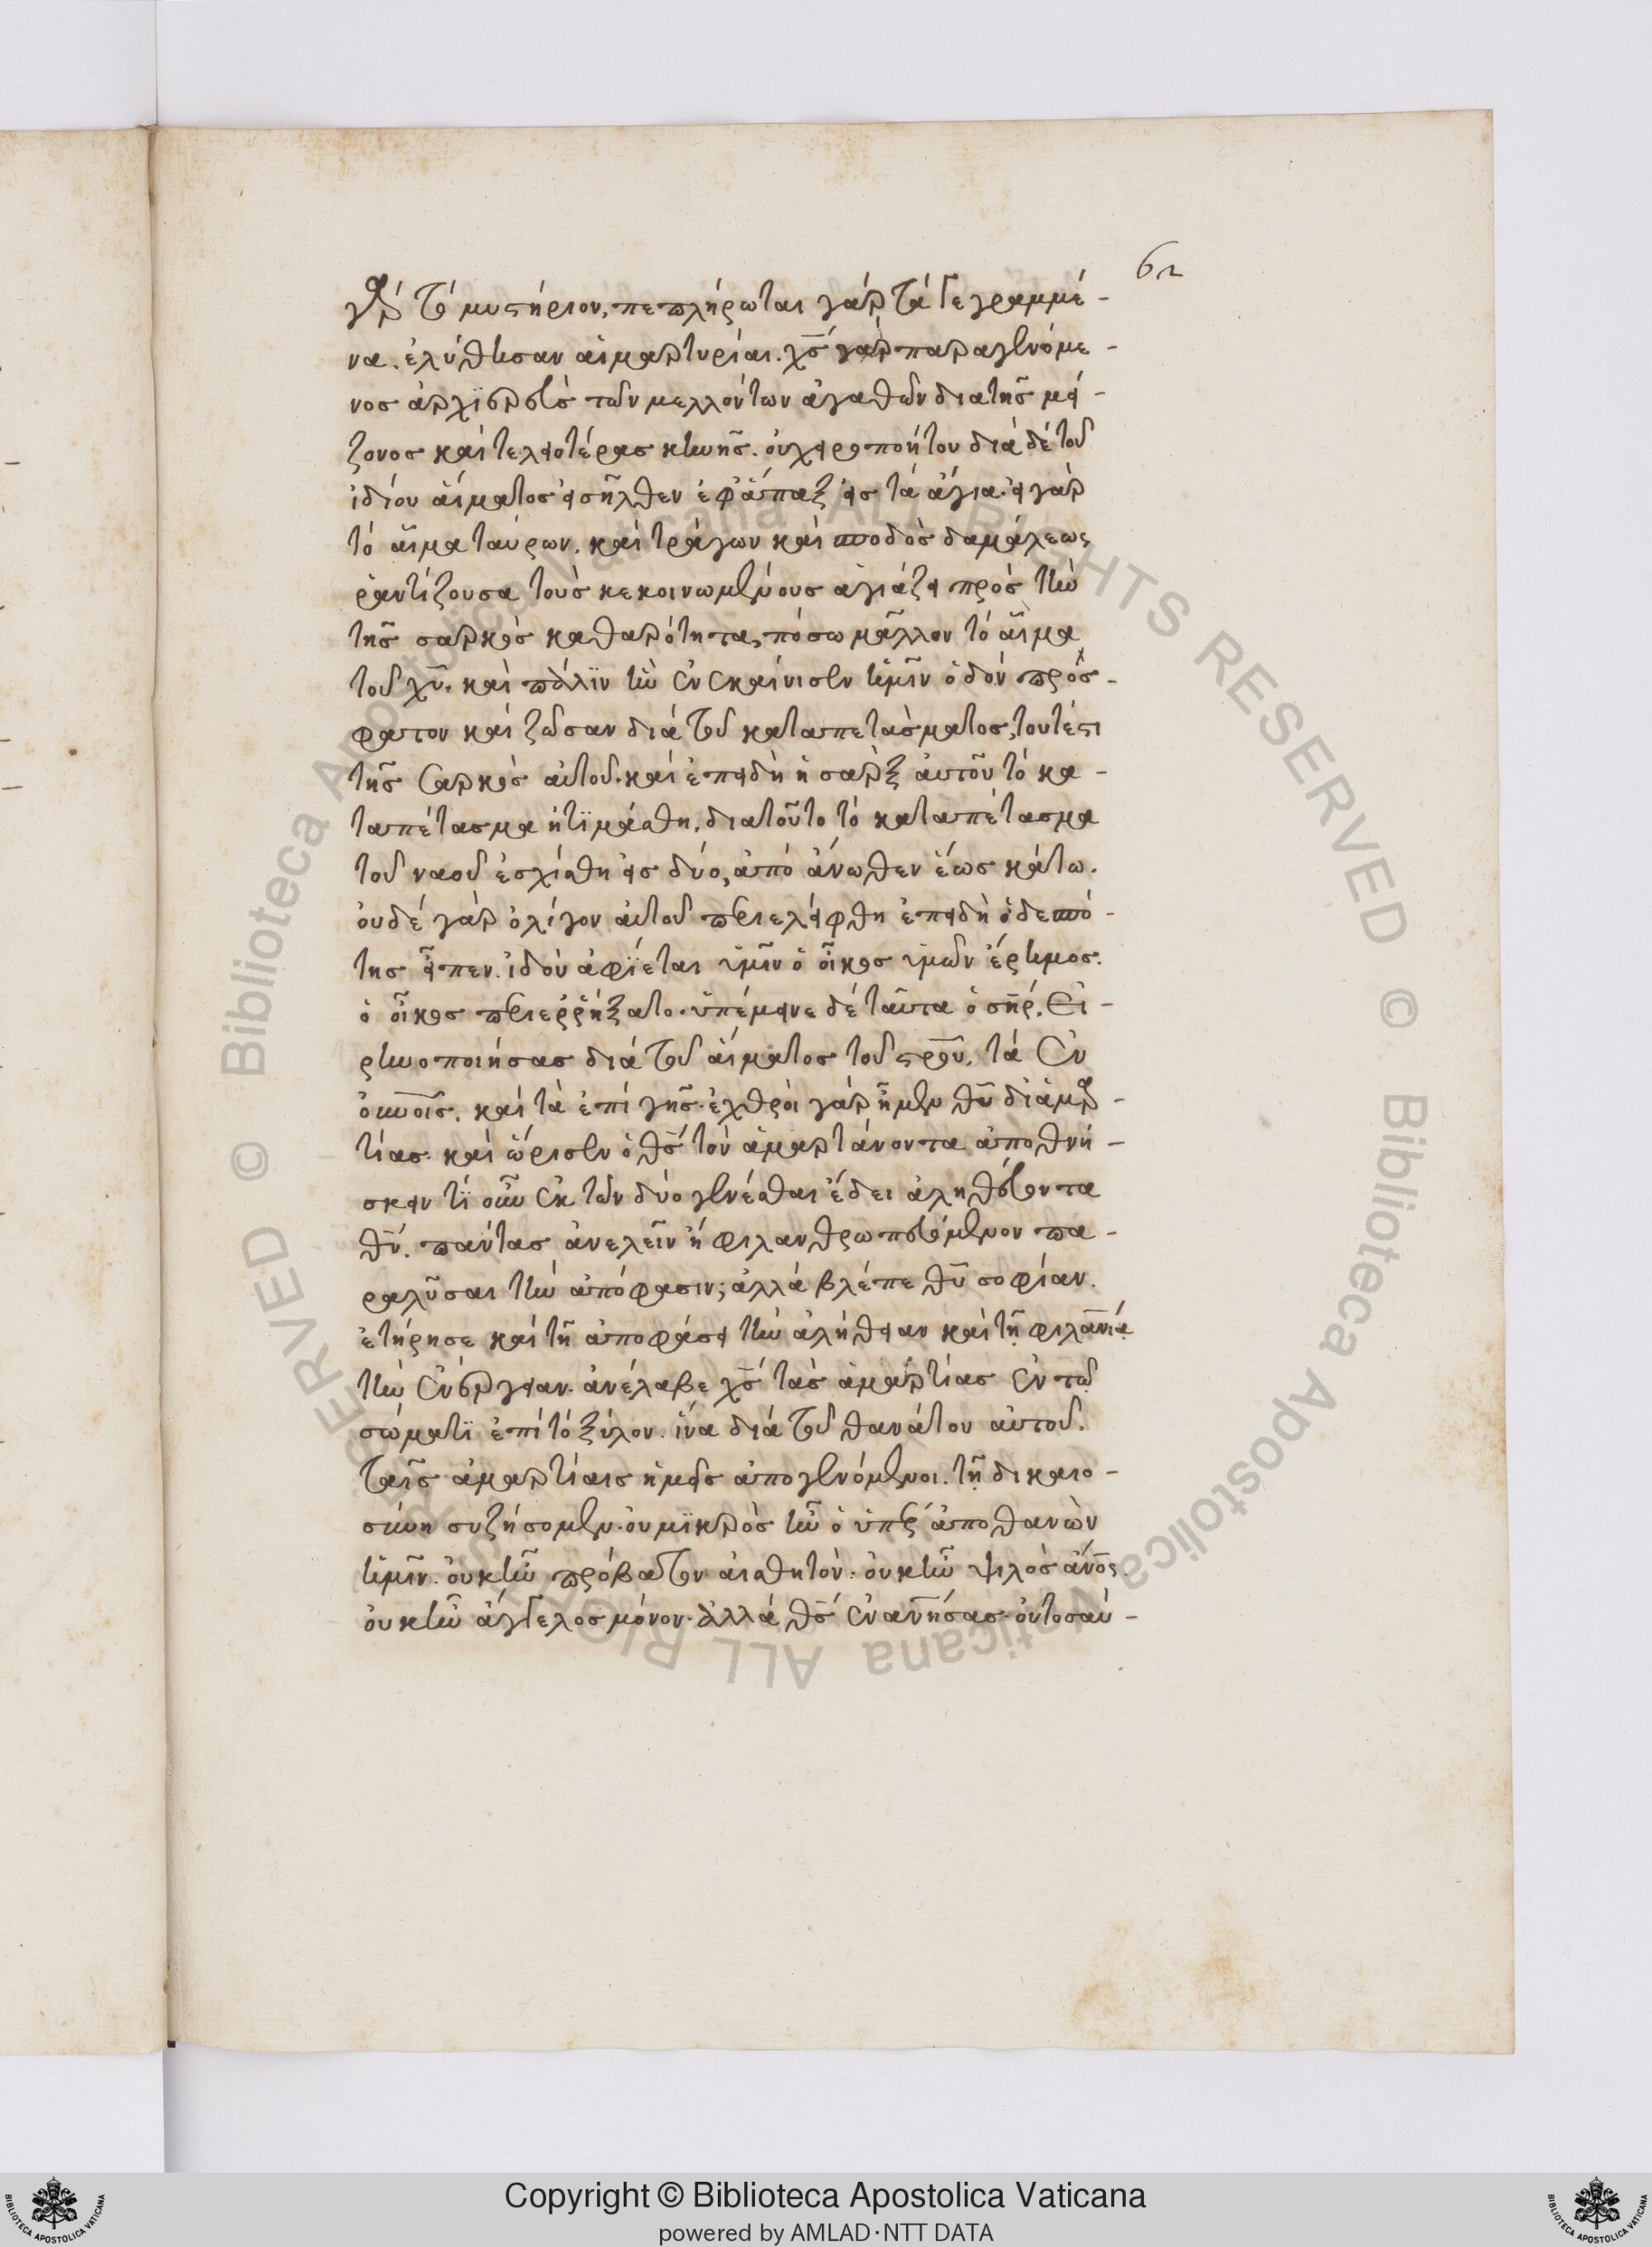 62
γὰρ τὸ μυστήριον, πεπλήρωται γὰρ τὰ γεγραμμέ-
να. ἐλύθησαν αἱ μαρτυρίαι. χς̄ γὰρ παραγενόμε-
νος ἀρχιερεὺς τῶν μελλόντων ἀγαθῶν διὰ τῆς μεί-
ζονος καὶ τελειοτέρας σκηνῆς. οὐ χειροποιήτου διὰ δὲ τοῦ
ἰδίου αἵματος εἰσῆλθεν ἐφάπαξ εἰς τὰ ἅγια. εἰ γὰρ
τὸ αἷμα ταύρων. καὶ τράγων καὶ σποδὸς δαμάλεως
ῥαντίζουσα τοὺς κεκοινωμένους ἁγιάζει πρὸς τὴν
τῆς σαρκὸς καθαρότητα, πόσω μᾶλλον τὸ αἷμα
τοῦ χῡ. καὶ πάλιν ἣν ἐνεκαίνισεν ἡμῖν ὁδὸν πρόσ-
φατον καὶ ζῶσαν διὰ τοῦ καταπετάσματος, τουτέστι
τῆς σαρκὸς αὐτοῦ. καὶ ἐπειδὴ ἡ σὰρξ αὐτοῦ τὸ κα-
ταπέτασμα ἠτιμάσθη, διατοῦτο τὸ καταπέτασμα
τοῦ ναοῦ ἐσχίσθη εἰς δύο, ἀπὸ ἄνωθεν ἕως κάτω.
οὐδὲ γὰρ ὀλίγον αὐτοῦ περιελείφθη ἐπειδὴ ὁ δεσπό-
της εἶπεν. ἰδοὺ ἀφίεται ὑμῖν ὁ οἶκος ὑμῶν ἔρημος.
ὁ οἶκος περιερρήξατο. ὑπέμεινε δὲ ταῦτα ὁ σηρ̄. Εἰ-
ρηνοποιήσας διὰ τοῦ αἵματος τοῦ στροῡ. τὰ ἐν
οὐνοις̄. καὶ τὰ ἐπὶ γῆς. ἐχθροὶ γὰρ ἦμεν θῡ δι' ἁμαρ-
τίας. καὶ ὥρισεν ὁ θς̄ τὸν ἁμαρτάνοντα ἀποθνή-
σκειν τί οὖν ἐκ τῶν δύο γενέσθαι ἔδει ἀληθεύοντα
θν̄. πάντας ἀνελεῖν ἢ φιλανθρωπευόμενον πα-
ραλῦσαι τὴν ἀπόφασιν; ἀλλὰ βλέπε θῡ σοφίαν.
ἐτήρησε καὶ τῇ ἀποφάσει τὴν ἀλήθειαν καὶ τῇ φιλανῑα
τὴν ἐνέργειαν. ἀνέλαβε χς̄ τὰς ἁμαρτίας ἐν τῷ
σώματι ἐπὶ τὸ ξύλον. ἵνα διὰ τοῦ θανάτου αὐτοῦ.
ταῖς ἁμαρτίαις ἡμεῖς ἀπογενόμενοι. τῇ δικαιο-
σύνη συζήσομεν. οὐ μικρὸς ἦν ὁ ὑπὲρ ἀποθανὼν
ἡμῖν. οὐκ ἦν πρόβατον αἰσθητόν. οὐκ ἦν ψιλὸς ἄνο̄ς.
οὐκ ἦν ἄγγελος μόνον. ἀλλὰ θς̄ ἐνανη̄σας. οὐ τοσαύ-
Copyright © Biblioteca Apostolica Vaticana
powered by AMLAD·NTT DATA
© Biblioteca Apostolica Vaticana ALL RIGHTS RESERVED © Biblioteca Apostolica Vaticana ALL RIGHTS RESERVED